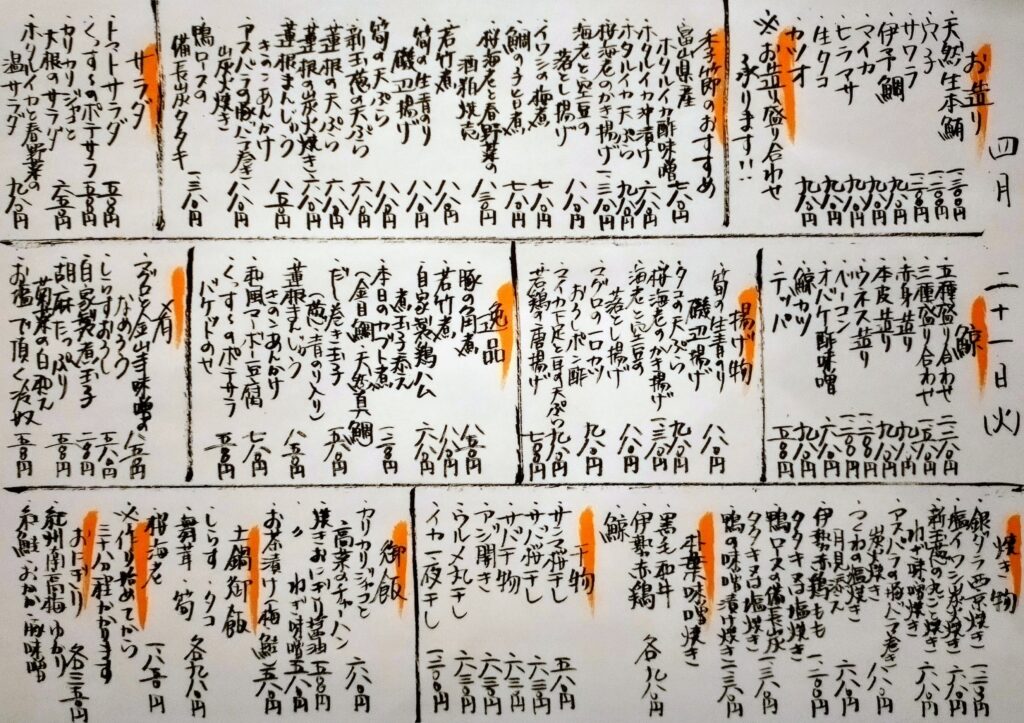 四月二十一日(火)
お造り
・天然生本鮪
・ウニ
・サワラ
・伊予鯛
・マイカ 九八〇円
・ヒラマサ 九八〇円
・生タコ 九八〇円
・カツオ 九八〇円
※お造り盛り合わせ
承ります!!
季節のおすすめ
富山県産
・ホタルイカ酢味噌 七八〇円
・ホタルイカ沖漬け 六八〇円
・ホタルイカ天ぷら 九八〇円
・桜海老のかき揚げ 一三八〇円
・海老と空豆の
落とし揚げ 八八〇円
・イワシの梅煮 七八〇円
・鯛の子と蕗煮 七八〇円
・桜海老と春野菜の
酒粕焼売 八三〇円
・若竹煮 八八〇円
・筍の生青のり
磯辺揚げ 八八〇円
・筍の天ぷら 八八〇円
・新玉葱の天ぷら 六八〇円
・蓮根の天ぷら 六八〇円
・蓮根の炭火焼き 六八〇円
・蓮根まんじゅう
きのこあんかけ 八五〇円
・アスパラの豚バラ巻
炭火焼き 八八〇円
・鴨ロースの
備長炭タタキ 一三八〇円
サラダ
・トマトサラダ 五八〇円
・くんすーのポテサラ 五五〇円
・カリカリジャコと
大根のサラダ 六五〇円
・ホタルイカと春野菜の
温サラダ 九八〇円
鯨
・五種盛り合わせ
・三種盛り合わせ
・赤身造り 九八〇円
・本皮造り 九八〇円
・ウネス造り
・ベーコン
・オバケ酢味噌 六八〇円
・鯨カツ 九八〇円
・テッパ 五五〇円
揚げ物
・筍の生青のり
磯辺揚げ 八八〇円
・タコの天ぷら 九八〇円
・桜海老のかき揚げ 一三八〇円
・海老と空豆の
落とし揚げ 八八〇円
・マグロの一口カツ
おろしポン酢 八八〇円
・マイカ下足と耳の天ぷら 九八〇円
・若鶏の唐揚げ 七八〇円
逸品
・豚の角煮 八五〇円
・若竹煮 八八〇円
・自家製鶏ハム
煮玉子添え 六八〇円
・本日のカブト煮
(金目鯛・天然真鯛)
・だし巻き玉子
(葱・青のり入り) 五八〇円
・蓮根まんじゅう
きのこあんかけ 八五〇円
・和風マーボー豆腐 七八〇円
・くんすーのポテサラ
バケットのせ 五五〇円
肴
・マグロと金山寺味噌の
なめろう 八五〇円
・しらすおろし 五八〇円
・自家製煮玉子
・胡麻たっぷり
菊菜の白和え 五五〇円
・お塩で頂く冷奴 五五〇円
焼き物
・銀ダラ西京焼き
・塩イワシ炭焼き 六八〇円
・新玉葱の丸ごと焼き
ねぎ味噌焼き 六八〇円
・アスパラの豚バラ巻き
炭焼き 八八〇円
・つくね塩焼き
月見添え 六八〇円
・伊勢赤鶏もも
タタキor塩焼き
・鴨ロースの備長炭
タタキor塩焼き 一三八〇円
・鴨の味噌漬け焼き 一三八〇円
朴葉味噌焼き
・黒毛和牛
・伊勢赤鶏
・鯨 各九八〇円
干物
・サンマ桜干し 五八〇円
・サバ桜干し 六三〇円
・サバ干物 六三〇円
・アジ開き 六三〇円
・ウルメ丸干し 六三〇円
・イカ一夜干し
御飯
・カリカリジャコと
高菜のチャーハン 六八〇円
・焼きおにぎり醤油 五五〇円
・〃 ねぎ味噌 五八〇円
・お茶漬け 梅 鮭 五八〇円
土鍋御飯
・しらす・タコ
・舞茸・筍 各九八〇円
・桜海老 一八八〇円
※作り始めてから
三十分程かかります
おにぎり 各三五〇円
・紀州南高梅・ゆかり
・紅鮭・おかか・豚味噌